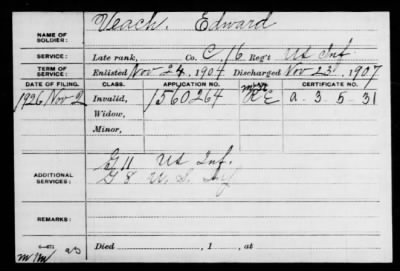 NAME OF SOLDIER: Veach, Edward
SERVICE: Late rank, Co. C, 16 Reg't US Inf
TERM OF SERVICE: Enlisted Nov 24, 1904 Discharged Nov 23, 1907
DATE OF FILING. CLASS. APPLICATION NO. CERTIFICATE NO.
1926, Nov 2 Invalid, 1560264 a. 3. 5. 31
Widow,
Minor,
ADDITIONAL SERVICES: G 11 US Inf.
G 8 U.S. Inf
REMARKS:
Died , 1 , at